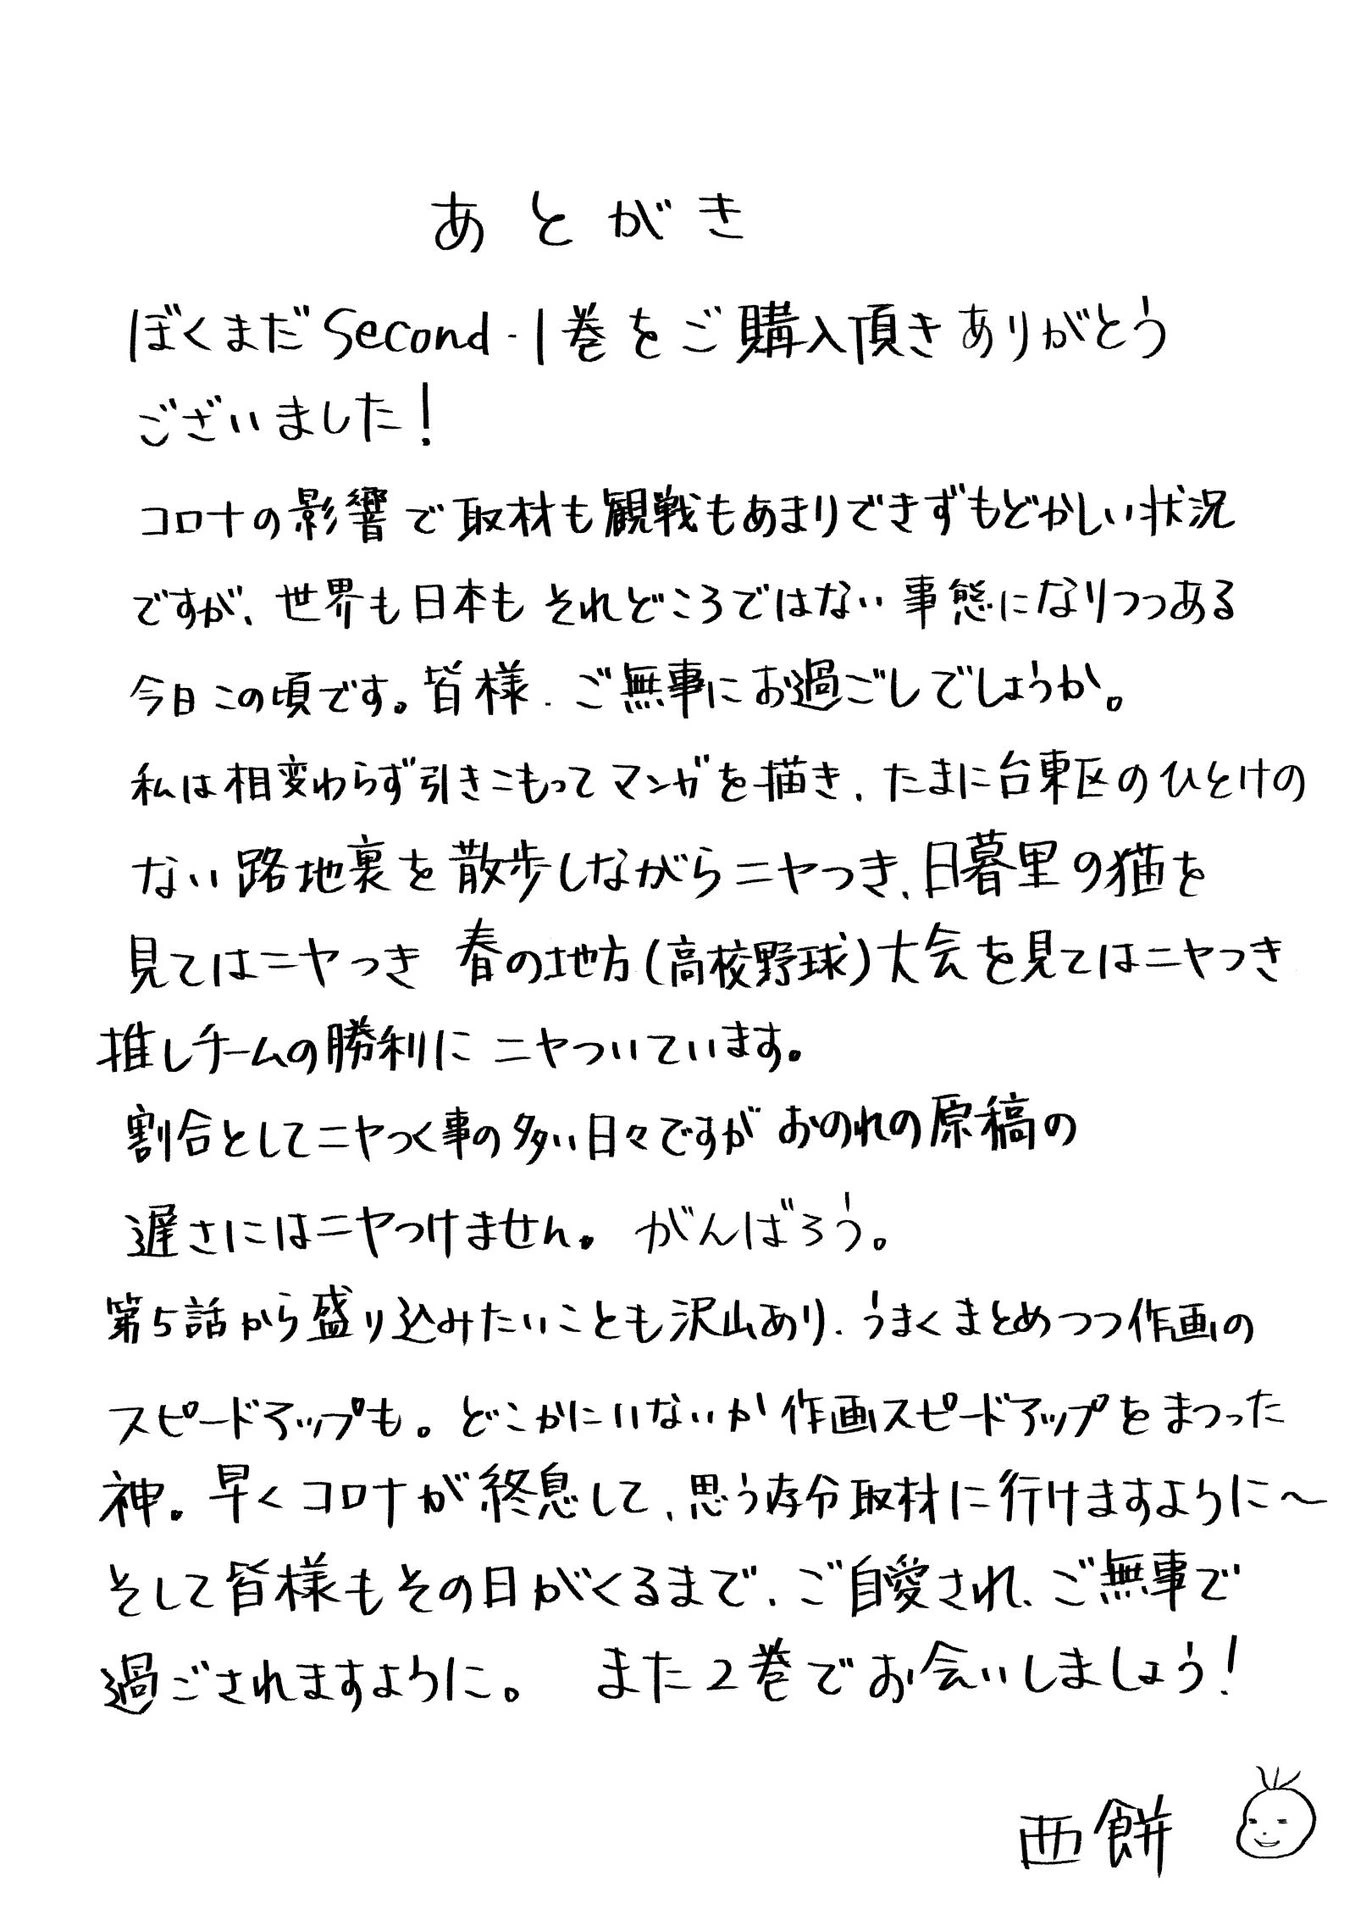 あとがき
ぼくまだSecond・1巻をご購入頂きありがとう
ございました！
コロナの影響で取材も観戦もあまりできずもどかしい状況
ですが、世界も日本もそれどころではない事態になりつつある
今日この頃です。皆様、ご無事にお過ごしでしょうか。
私は相変わらず引きこもってマンガを描き、たまに台東区のひとけの
ない路地裏を散歩しながらニヤつき、日暮里の猫を
見てはニヤつき 春の地方(高校野球)大会を見てはニヤつき
推しチームの勝利にニヤついています。
割合としてニヤつく事の多い日々ですが おのれの原稿の
遅さにはニヤつけません。がんばろう。
第5話から盛り込みたいことも沢山あり、うまくまとめつつ作画の
スピードアップも。どこかにいないか作画スピードアップをまつった
神。早くコロナが終息して、思う存分取材に行けますように～
そして皆様もその日がくるまで、ご自愛され、ご無事で
過ごされますように。 また2巻でお会いしましょう！
西餅